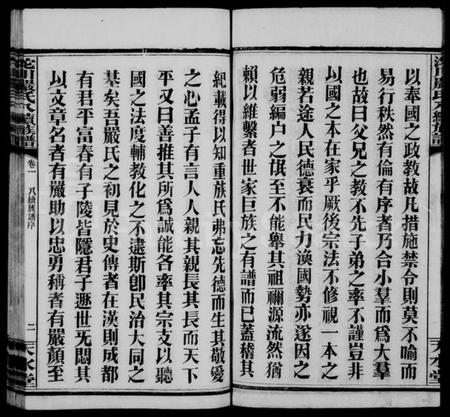 以奉國之政教故凡措施禁令則莫不喻而
易行秩然有倫有序者乃合小羣而爲大羣
也故曰父兄之教不先子弟之率不謹豈非
以國之本在家乎厥後宗法不修視一本之
親若途人民德衰而民力渙國勢亦遂因之
危弱編户之氓至不能舉其祖禰源流然猶
賴以維繫者世家巨族之有譜而已蓋稽其
天水堂
紀載得以知重族民弗忘先德而生其敬愛
之心孟子有言人人親其親長其長而天下
平又曰善推其所爲誠能各率其宗支以聽
國之法度輔教化之不逮斯卽民治大同之
基矣吾嚴氏之初見於史傳者在漢則成都
有君平富春有子陵皆隱君子遯世无悶其
以文章名者有嚴助以忠勇稱者有嚴顏至
沱川嚴氏八續族譜
卷一
八續族譜序
二
天水堂